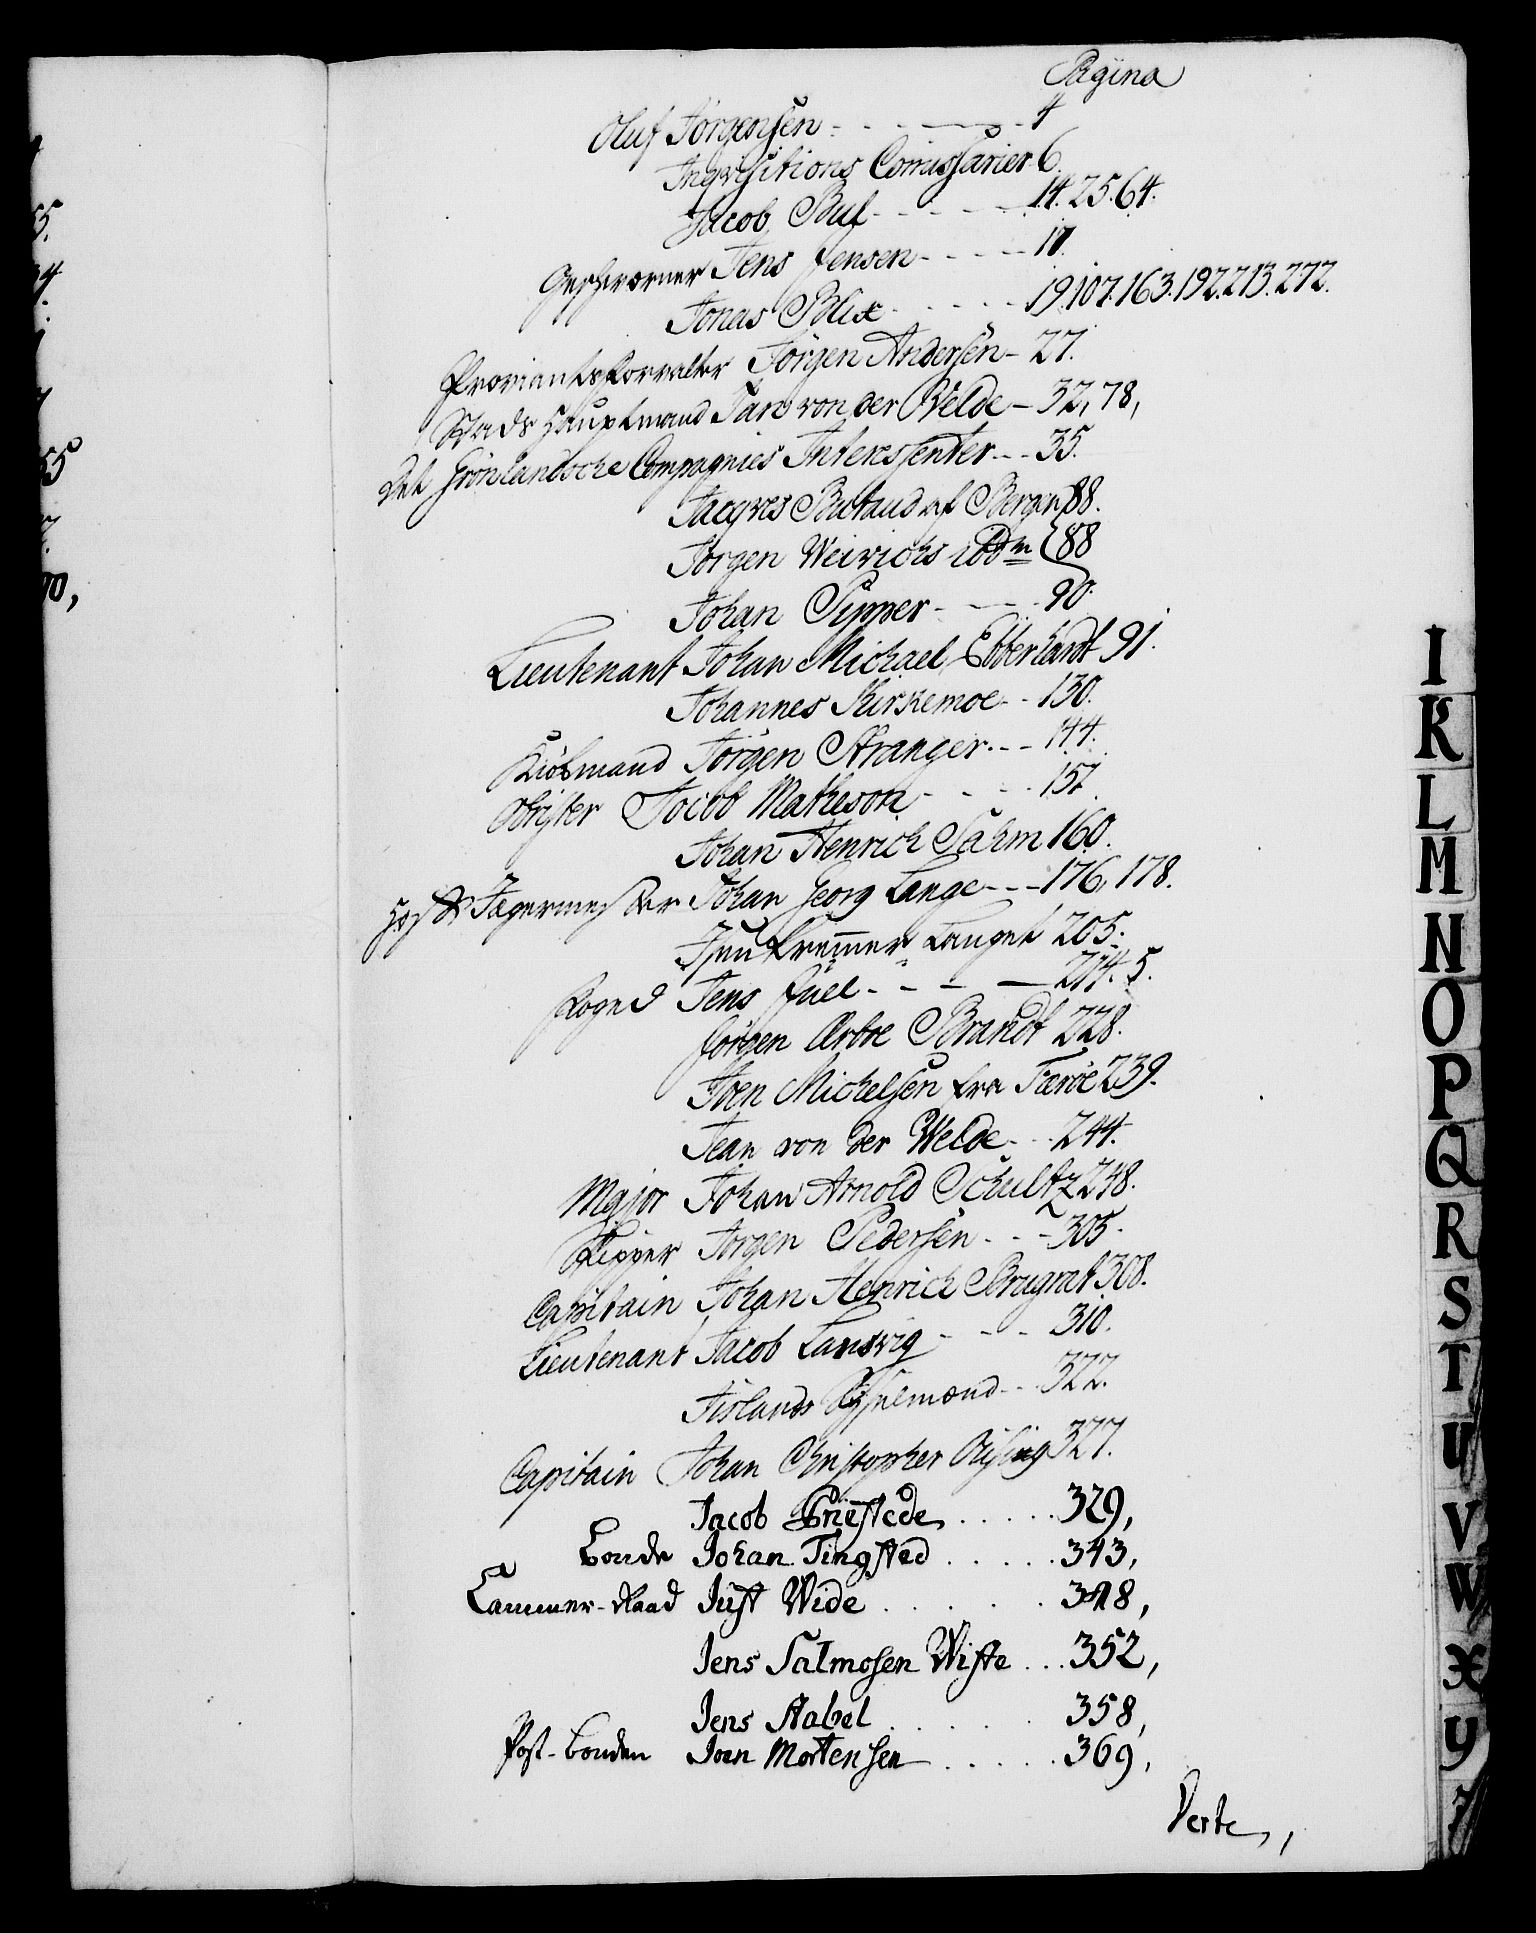 Pagina
Oluf Jörgensen - - - - - 4
Inqvisitions Comissarier 6.
Jacob Buf - - - - - 14. 25. 64.
Geschworner Jens Jensen - - - - - 17.
Jonas Blix - - - - - 19. 107. 163. 192. 213. 272.
Proviantsforvalter Jörgen Andersen - 27.
Stads Hauptmand Jan von der Velde - 32, 78,
Det Grönlandsche Compagnies Interessenter - - - 35.
Jacqves Butaud af Bergen 88.
Jörgen Weirichs ibdm 88
Johan Pipper - - - - 90.
Lieutenant Johan Michael Ebberhardt 91.
Johannes Kirkemoe - - 130.
Kiöbmand Jörgen Stranger - - - 144.
Obrister Jacob Matheson - - - - 157.
Johan Henrich Sahm 160.
Hof Jægermester Johan Georg Lange - - - 176, 178.
Isenkremmer Lauget 205.
Foged Jens Juel - - - - 214. 5.
Jörgen Brandt 228.
Joen Michelsen fra Færöe 239.
Jean von der Welde - - - 244.
Major Johan Arnold Schultz 248.
Skipper Jörgen Pedersen - - - 305.
Capitain Johan Henrich Brugrat 308.
Lieutenant Jacob Landvig - - - 310.
Islands - - - 322.
Capitain Johan Christopher Öising 327.
Jacob Griestede . . . . . 329,
Bonde Johan Tingsted . . . . . 343,
Cammer-Raad Just Wide . . . . . 348,
Jens Salmosen Wiste . . . 352,
Jens Stabel . . . . . 358,
Post-bonden Joen Mortensen . . . . . 369,
Verte,
I
K
L
M
N
O
P
Q
R
S
T
U
V
W
X
Y
Z
55.
34.
55